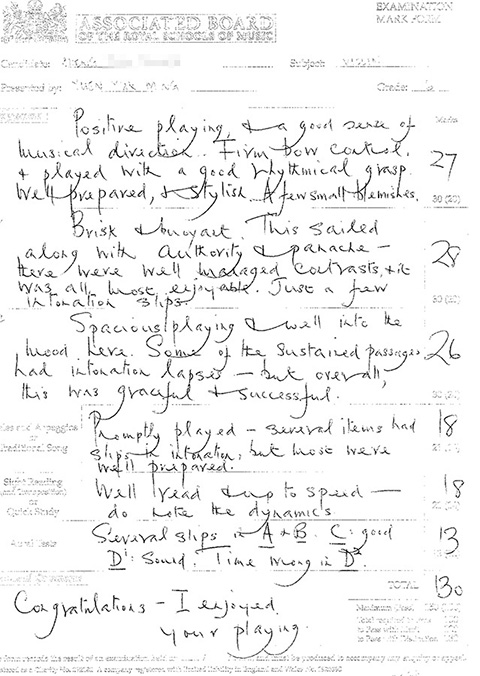 EXAMINATION
MARK FORM
ASSOCIATED BOARD
OF THE ROYAL SCHOOLS OF MUSIC
Candidate:
Subject: VIOLIN
Presented by:
Grade: 6
Marks
Positive playing, & a good sense of
musical direction. Firm bow control,
& played with a good rhythmical grasp.
Well prepared, & stylish. A few small blemishes.
27
30 (20)
Brisk & buoyant. This sailed
along with authority & panache –
there were well managed contrasts, & it
was all most enjoyable. Just a few
intonation slips.
28
30 (20)
Spacious playing & well into the
mood here. Some of the sustained passages
had intonation lapses – but overall,
this was graceful & successful.
26
30 (20)
Scales and Arpeggios
or
Traditional Song
Promptly played – several items had
slips in intonation, but most were
well prepared.
18
21 (14)
Sight Reading
or
Quick Study
Well read & up to speed –
do note the dynamics
18
Aural Tests
Several slips in A & B. C: good
D¹: Sound. Time wrong in D².
13
TOTAL
130
Congratulations – I enjoyed
your playing.